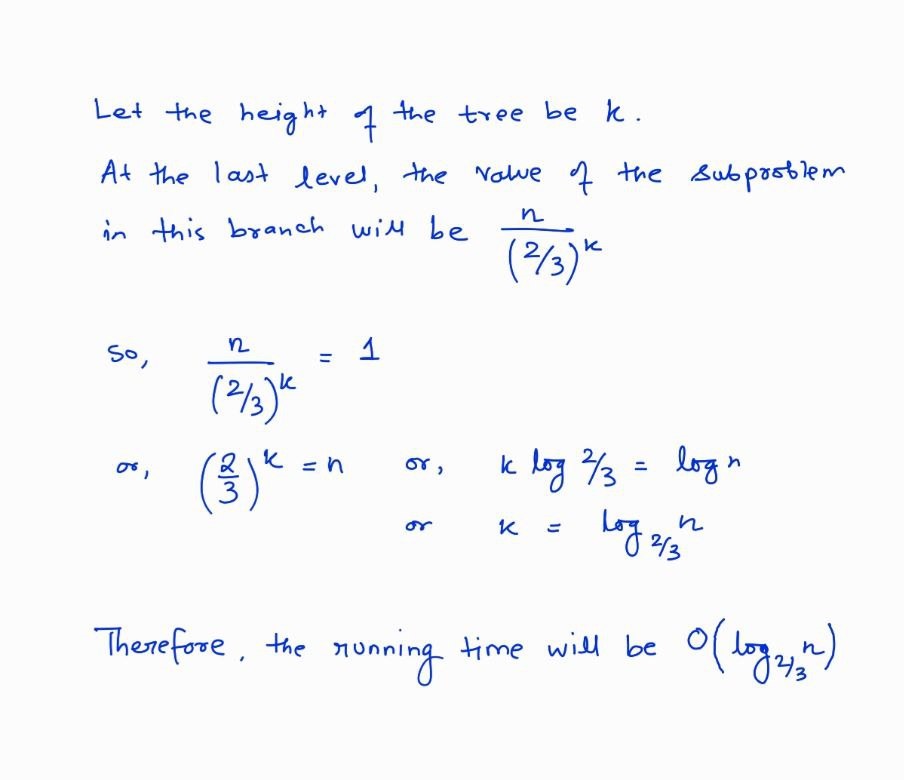 Let the height of the tree be k.
At the last level, the value of the subproblem
in this branch will be n/(2/3)^k
So, n/(2/3)^k = 1
or, (2/3)^k = n or, k log 2/3 = log n
or k = log_{2/3} n
Therefore, the running time will be O(log_{2/3} n)